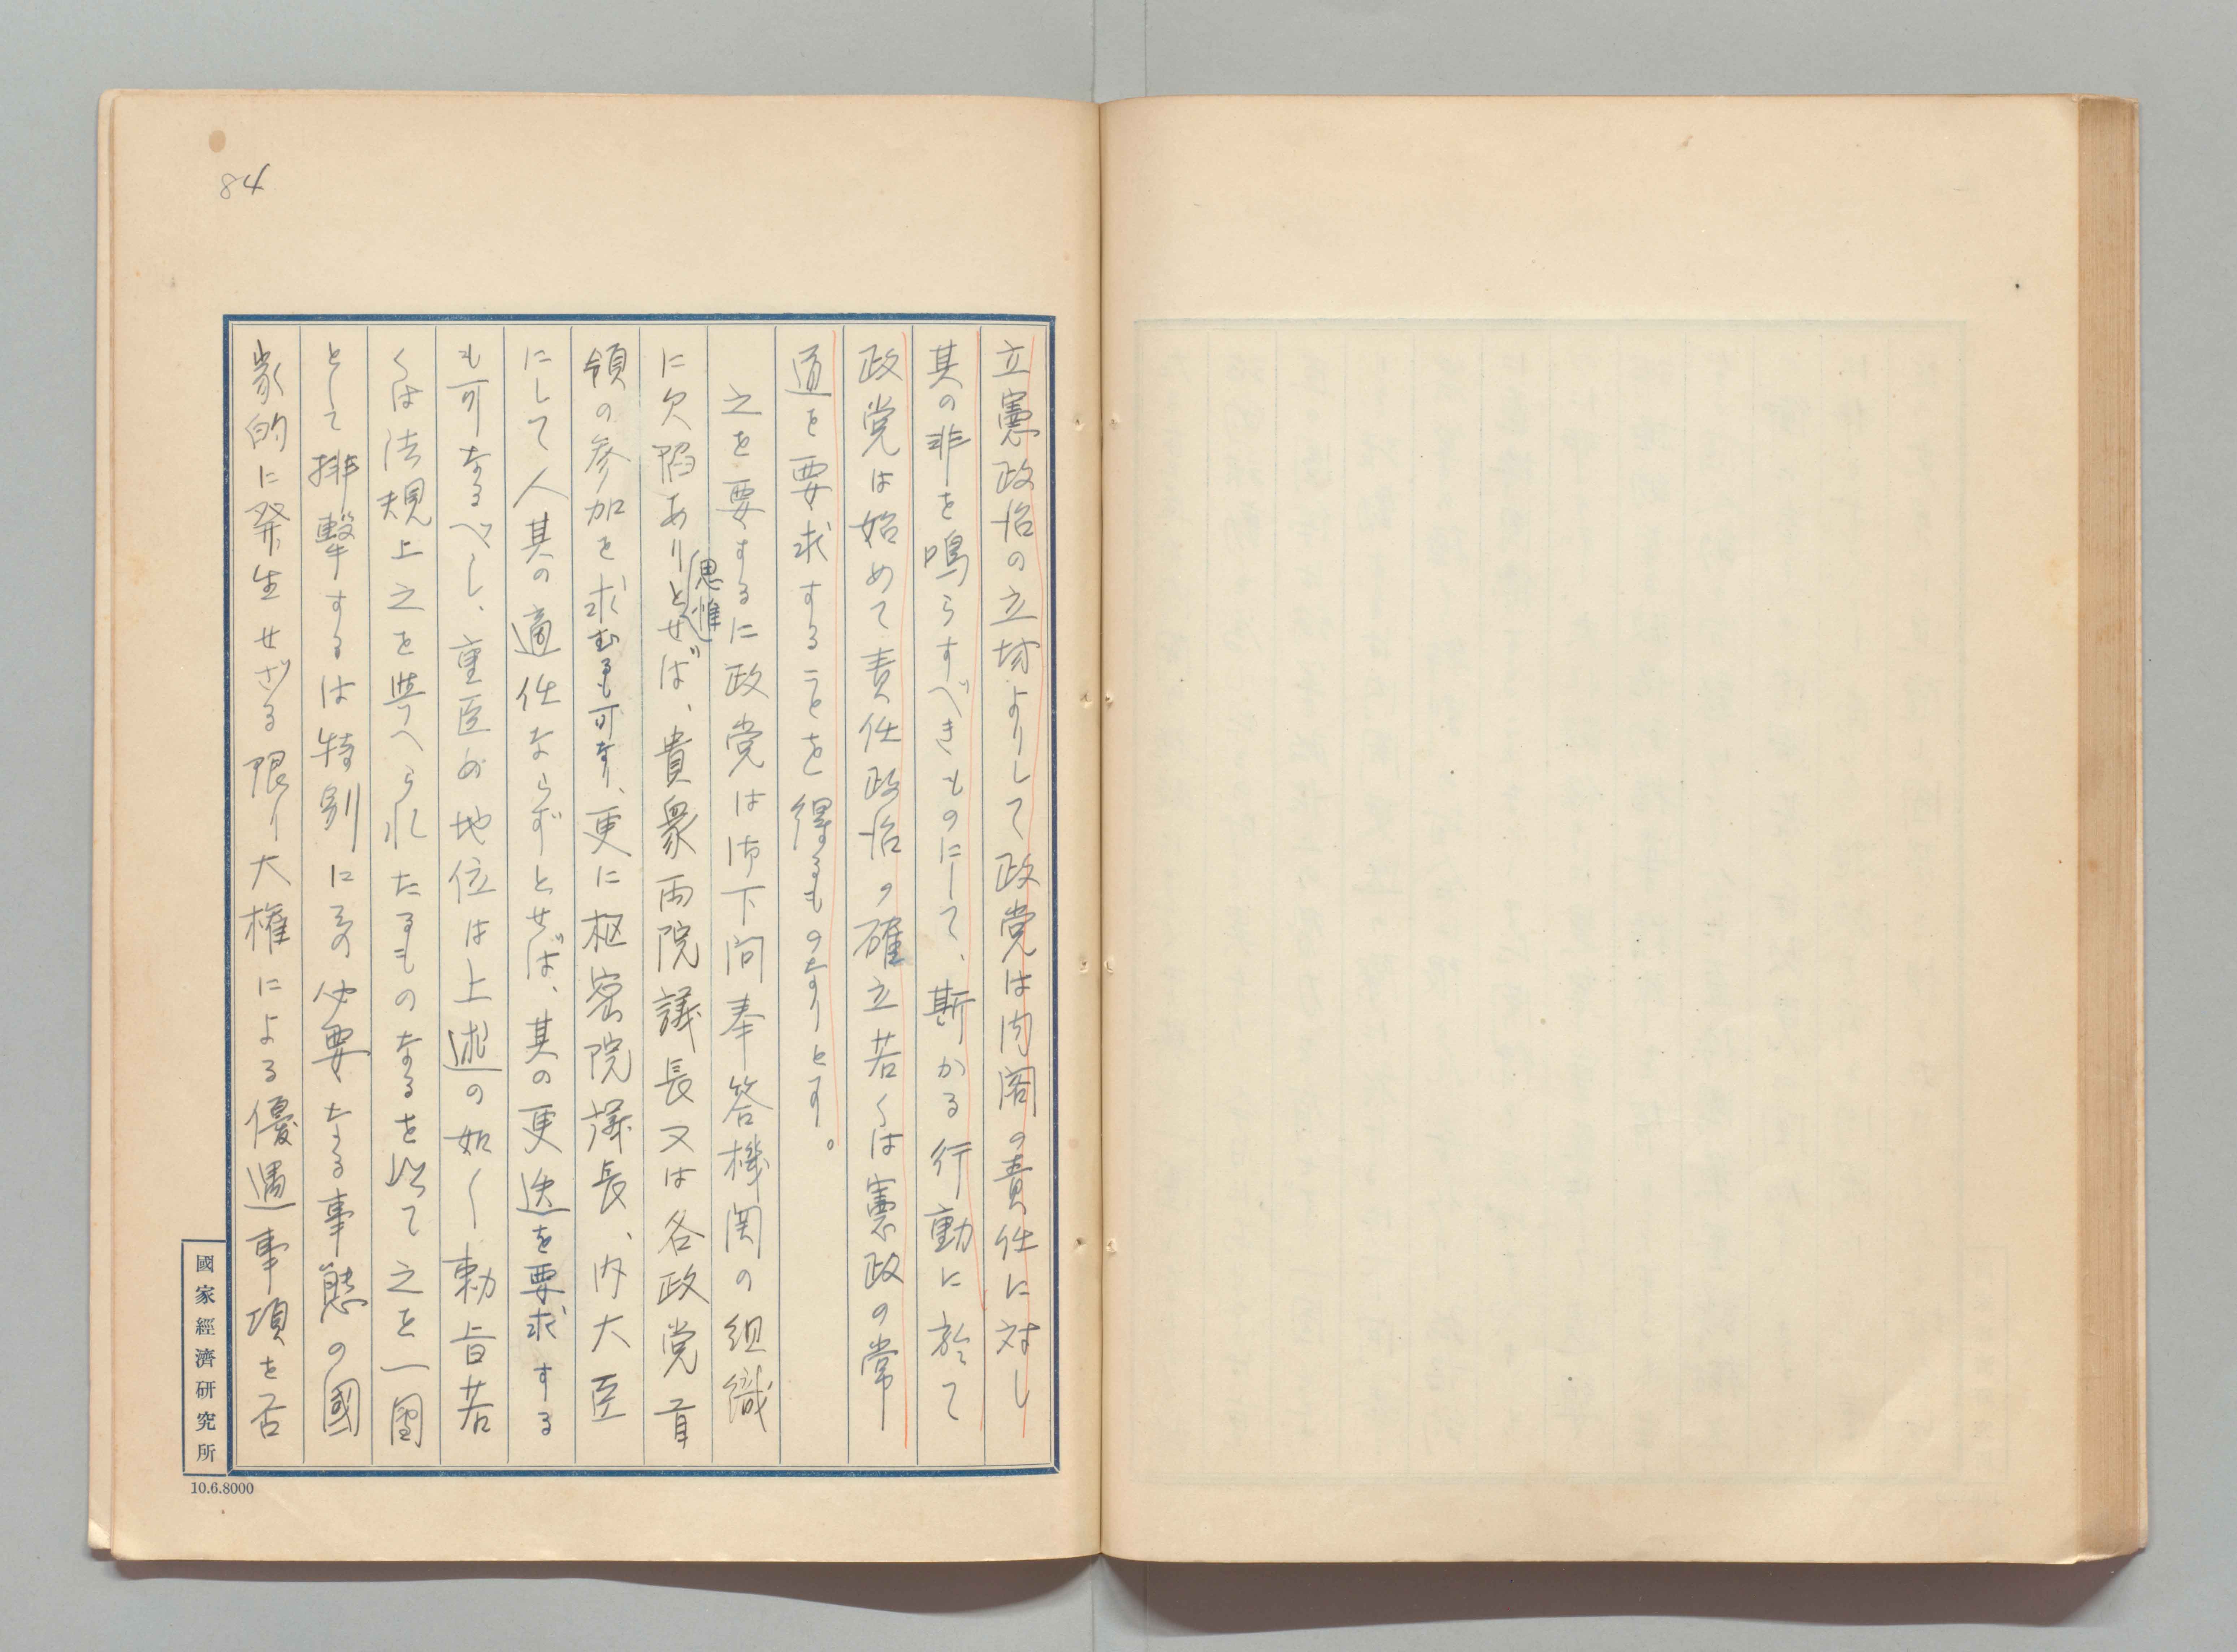 84
立憲政治の立場よりして政党は内閣の責任に対し
其の非を鳴らすべきものにして、斯かる行動に於て
政党は始めて責任政治の確立若くは憲政の常
道を要求することを得るものなりとす。
之を要するに政党は御下問奉答機関の組織
に欠陥ありとせば、貴衆両院議長又は各政党首
思惟
領の参加を求むるも可なり、更に枢密院議長、内大臣
にして人其の適任ならずとせば、其の更迭を要求する
も可なるべし、重臣の地位は上述の如く勅旨若
くは法規上之を与へられたるものなるを以て之を一団
として排撃するは特別にその必要なる事態の國
家的に発生せざる限り大権による優遇事項を否
國家經濟研究所
10.6.8000